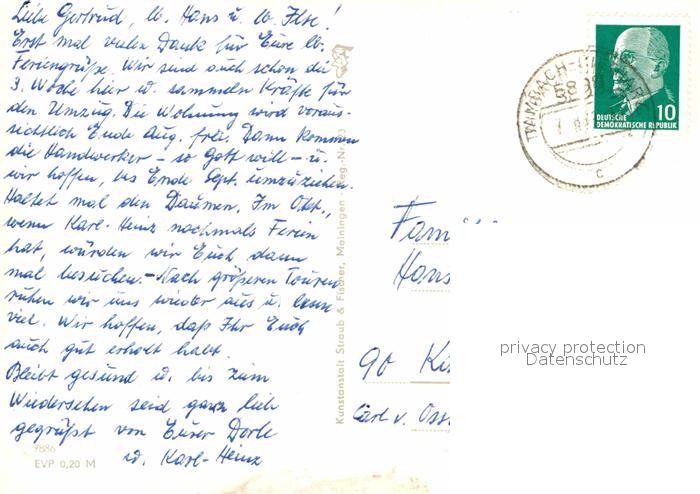 Liebe Gertrud, lb. Hans u. lb. Ilse!
Erst mal vielen Dank für Eure lb.
Feriengrüße. Wir sind auch schon die
3. Woche hier u. sammeln Kräfte für
den Umzug. Die Wohnung wird voraus-
sichtlich Ende Aug. frei. Dann kommen
die Handwerker – so Gott will – u.
wir hoffen, bis Ende Sept. umzuziehen.
Haltet mal den Daumen. Im Okt.,
wenn Karl-Heinz nochmals Ferien
hat, würden wir Euch dann
mal besuchen. – Nach größeren Touren
ruhen wir uns wieder aus u. lesen
viel. Wir hoffen, daß Ihr Euch
auch gut erholt habt.
Bleibt gesund u. bis zum
Wiedersehen seid ganz lieb
gegrüßt von Eurer Dorle
u. Karl-Heinz
9886
EVP 0,20 M
Kunstanstalt Straub & Fischer, Meiningen Reg.-Nr.
TAMBACH-
C
10
DEUTSCHE
DEMOKRATISCHE REPUBLIK
Fam
Hans
90
Carl v. Oss
privacy protection
Datenschutz